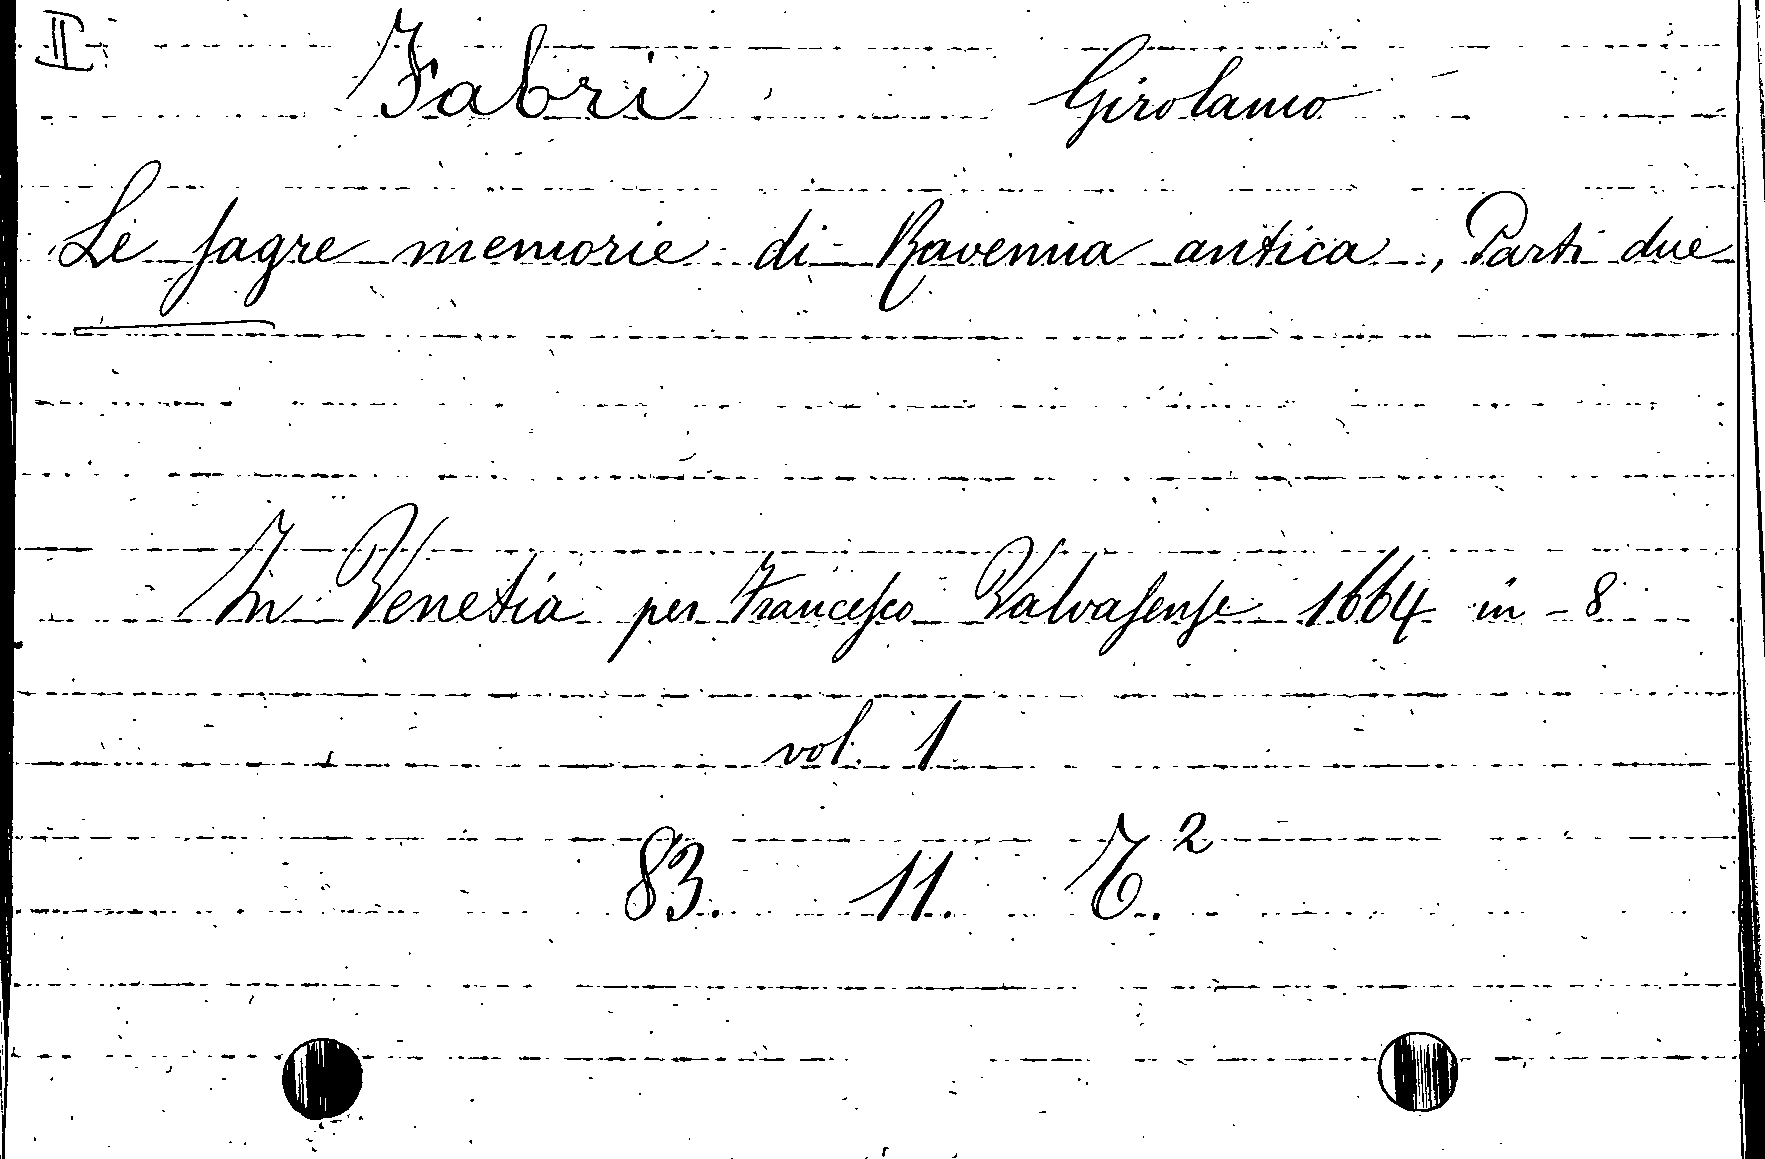 II
Fabri Girolamo
Le sagre memorie di Ravenna antica, Parti due
In Venetia per Francesco Valvasense 1664 in-8
vol. 1
83. 11. T.²